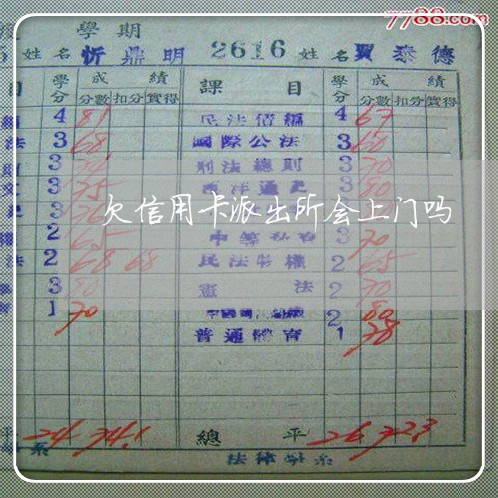 7788.com
學期
姓名 忻鼎明 2616 姓名 賈泰德
目 學分 成績 課目 學分 成績
分數 扣分 實得 分數 扣分 實得
4 81 民法債編 4 67
法 3 68 國際公法 3 60
3 刑法總則 3 70
3 75 西洋通史 3 80
欠信用卡派出所会上门吗
2 65 3 70
法 2 68 68 民法物權 2 65
3 80 憲法 2 70
1 70 2 80
普通體育 1 78
平 24 74.1 總平 26 72.3
系 法律學系